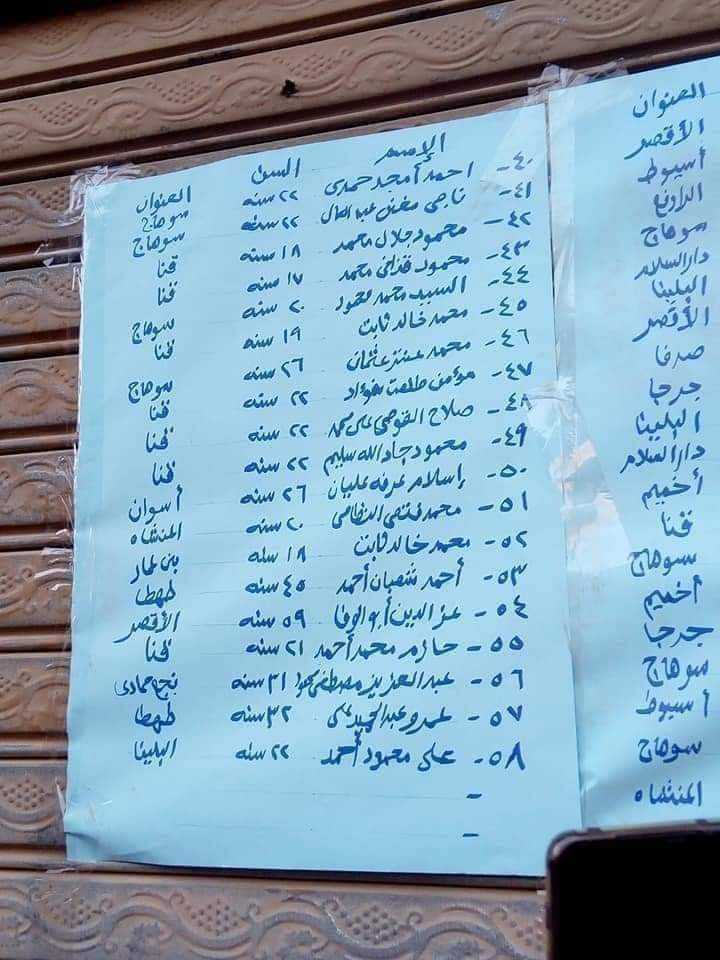 الإسم السن العنوان
٤٠- احمد أمجد حمدى ٢٢ سنه سوهاج
٤١- ناجى عبد العال ٢٢ سنه سوهاج
٤٢- محمود جلال محمد ١٨ سنه قنا
٤٣- محمود محمد ١٧ سنه قنا
٤٤- السيد محمد محمود ٢٠ سنه سوهاج
٤٥- محمد خالد ثابت ١٩ سنه قنا
٤٦- محمد عنتر عثمان ٢٦ سنه سوهاج
٤٧- مؤمن طلعت فؤاد ٢٢ سنه قنا
٤٨- صلاح على محمد ٢٢ سنه قنا
٤٩- محمود جاد الله سليم ٢٢ سنه قنا
٥٠- إسلام عرفه عليان ٢٦ سنه أسوان
٥١- محمد فتحى ٢٠ سنه المنشاه
٥٢- محمد خالد ثابت ١٨ سنه
٥٣- أحمد شعبان أحمد ٤٥ سنه طهطا
٥٤- عز الدين أبو الوفا ٥٩ سنه الأقصر
٥٥- حازم محمد أحمد ٢١ سنه قنا
٥٦- عبد العزيز مصطفى ٣١ سنه نجع حمادى
٥٧- عمرو عبد الحميد على ٣٢ سنه طهطا
٥٨- على محمود أحمد ٢٢ سنه البلينا
-
-
العنوان
الأقصر
أسيوط
سوهاج
دار السلام
البلينا
الأقصر
صدفا
جرجا
البلينا
دار السلام
أخميم
قنا
سوهاج
أخميم
جرجا
سوهاج
أسيوط
سوهاج
المنشاه